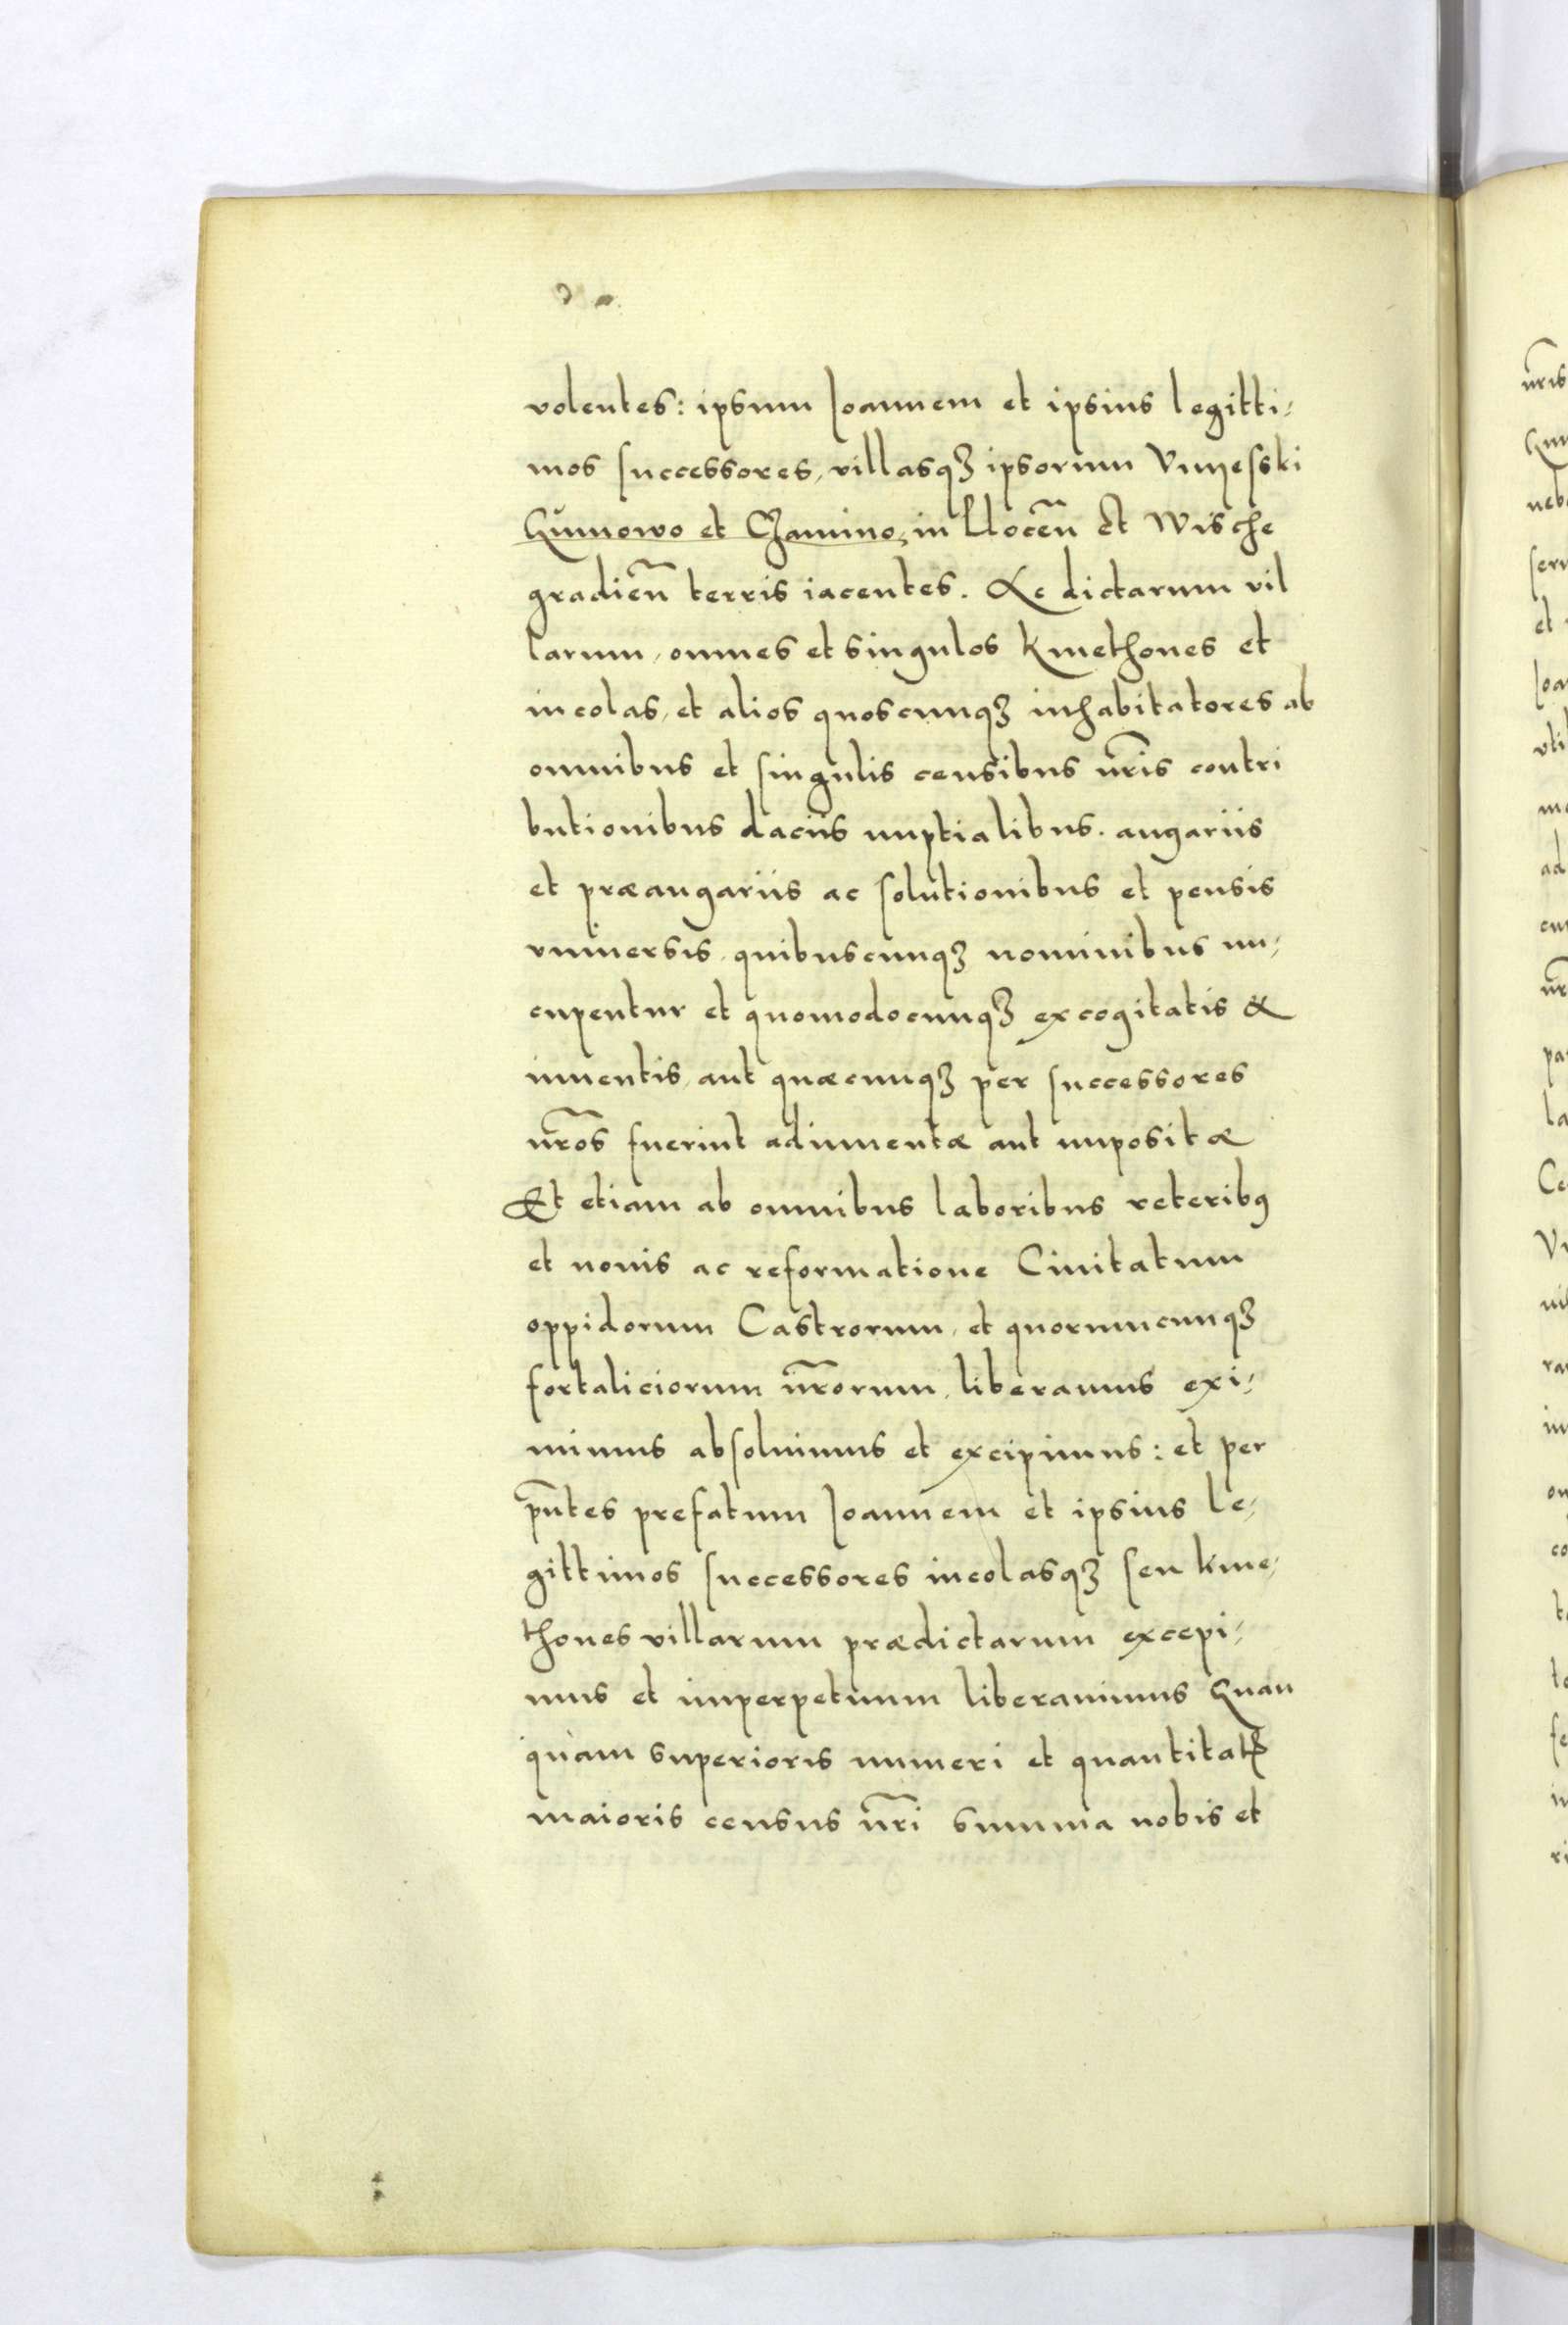 volentes: ipsum Joannem et ipsius legitti-
mos successores, villasqȝ ipsorum
et in Plocen̄ Et Wische
gradien̄ terris iacentes. Ac dictarum vil
larum, omnes et singulos kmethones et
incolas, et alios quoscunqȝ inhabitatores ab
omnibus et singulis censibus nr̄is contri
butionibus daciis nuptialibus. angariis
et præangariis ac solutionibus et pensis
vniuersis, quibuscunqȝ nominibus nu-
cupentur et quomodocunqȝ excogitatis &
inuentis, aut quæcunqȝ per successores
nr̄os fuerint adinuentæ aut impositæ
Et etiam ab omnibus laboribus veteribꝰ
et nouis ac reformatione Ciuitatum
oppidorum Castrorum, et quorumcunqȝ
fortaliciorum nr̄orum, liberamus exi-
mimus absoluimus et excipimus: et per
pn̄tes prefatum Joannem et ipsius le-
gittimos successores incolasqȝ seu kme-
thones villarum prædictarum excepi-
mus et inperpetuum liberauimus Quan
quam superioris numeri et quantitatꝭ
maioris census nr̄i summa nobis et